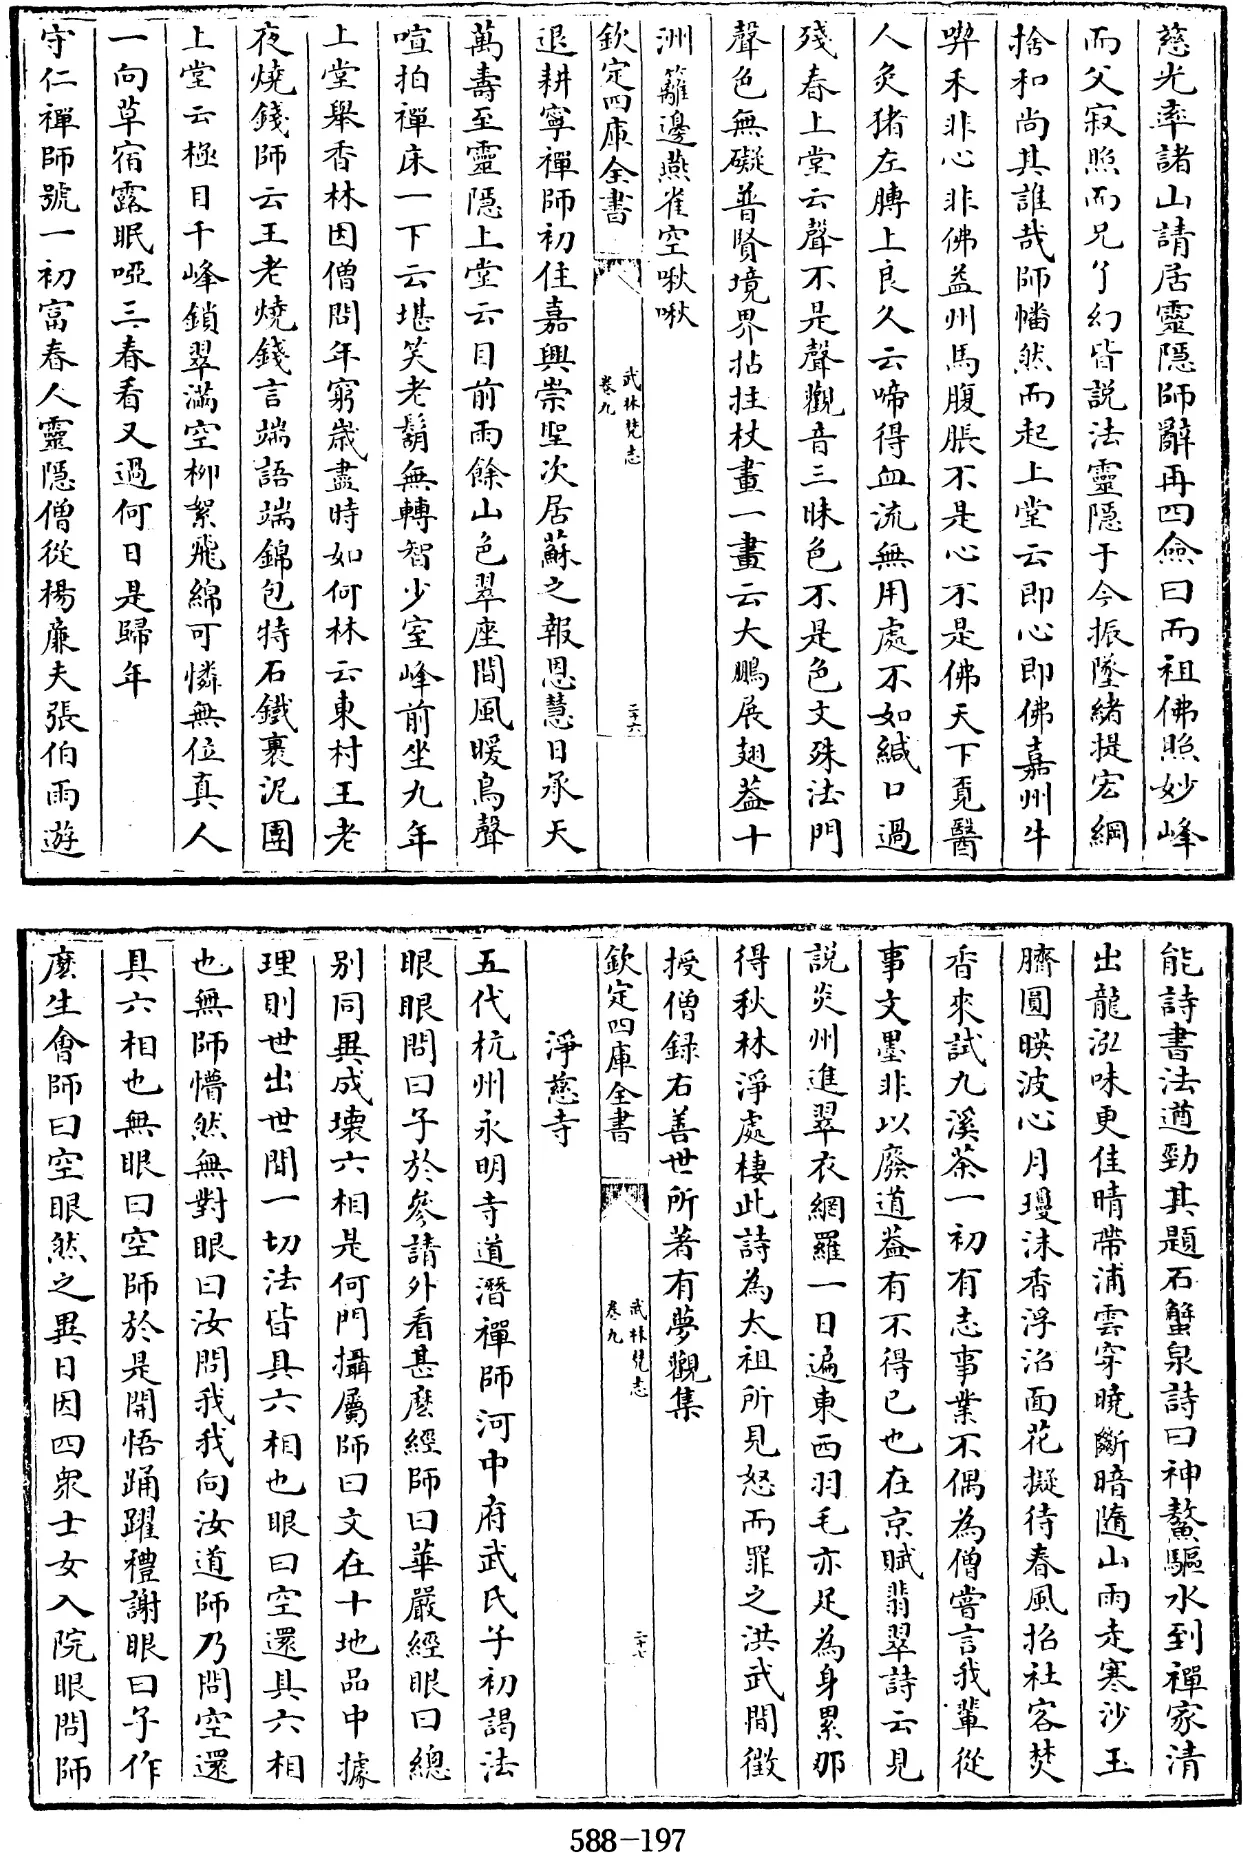 慈光率諸山請居靈隱師辭再四僉曰而祖佛照妙峰
而父寂照而兄了幻皆說法靈隱于今振墜緒提宏綱
捨和尚其誰哉師幡然而起上堂云即心即佛嘉州牛
喫禾非心非佛益州馬腹脹不是心不是佛天下覓醫
人灸猪左膊上良久云啼得血流無用處不如緘口過
殘春上堂云聲不是聲觀音三昧色不是色文殊法門
聲色無礙普賢境界拈拄杖畫一畫云大鵬展翅葢十
洲籬邊燕雀空啾啾
欽定四庫全書
武林梵志
卷九
二十六
退耕寧禪師初住嘉興崇聖次居蘇之報恩慧日承天
萬壽至靈隱上堂云目前雨餘山色翠座間風暖鳥聲
喧拍禪床一下云堪笑老鬍無轉智少室峰前坐九年
上堂舉香林因僧問年窮歲盡時如何林云東村王老
夜燒錢師云王老燒錢言端語端錦包特石鐵裹泥團
上堂云極目千峰鎖翠滿空柳絮飛綿可憐無位真人
一向草宿露眠啞三春看又過何日是歸年
守仁禪師號一初富春人靈隱僧從楊廉夫張伯雨遊
能詩書法遒勁其題石蟹泉詩曰神鰲驅水到禪家清
出龍泓味更佳晴帶浦雲穿曉斷暗隨山雨走寒沙玉
臍圓暎波心月瓊沫香浮沿面花擬待春風招社客焚
香來試九溪茶一初有志事業不偶為僧嘗言我輩從
事文墨非以廢道葢有不得已也在京賦翡翠詩云見
說炎州進翠衣網羅一日遍東西羽毛亦足為身累那
得秋林淨處棲此詩為太祖所見怒而罪之洪武間徵
授僧録右善世所著有夢觀集
欽定四庫全書
武林梵志
卷九
二十七
淨慈寺
五代杭州永明寺道潛禪師河中府武氏子初謁法
眼眼問曰子於參請外看甚麽經師曰華嚴經眼曰總
別同異成壞六相是何門攝屬師曰文在十地品中據
理則世出世間一切法皆具六相也眼曰空還具六相
也無師懵然無對眼曰汝問我我向汝道師乃問空還
具六相也無眼曰空師於是開悟踊躍禮謝眼曰子作
麽生會師曰空眼然之異日因四衆士女入院眼問師
588-197